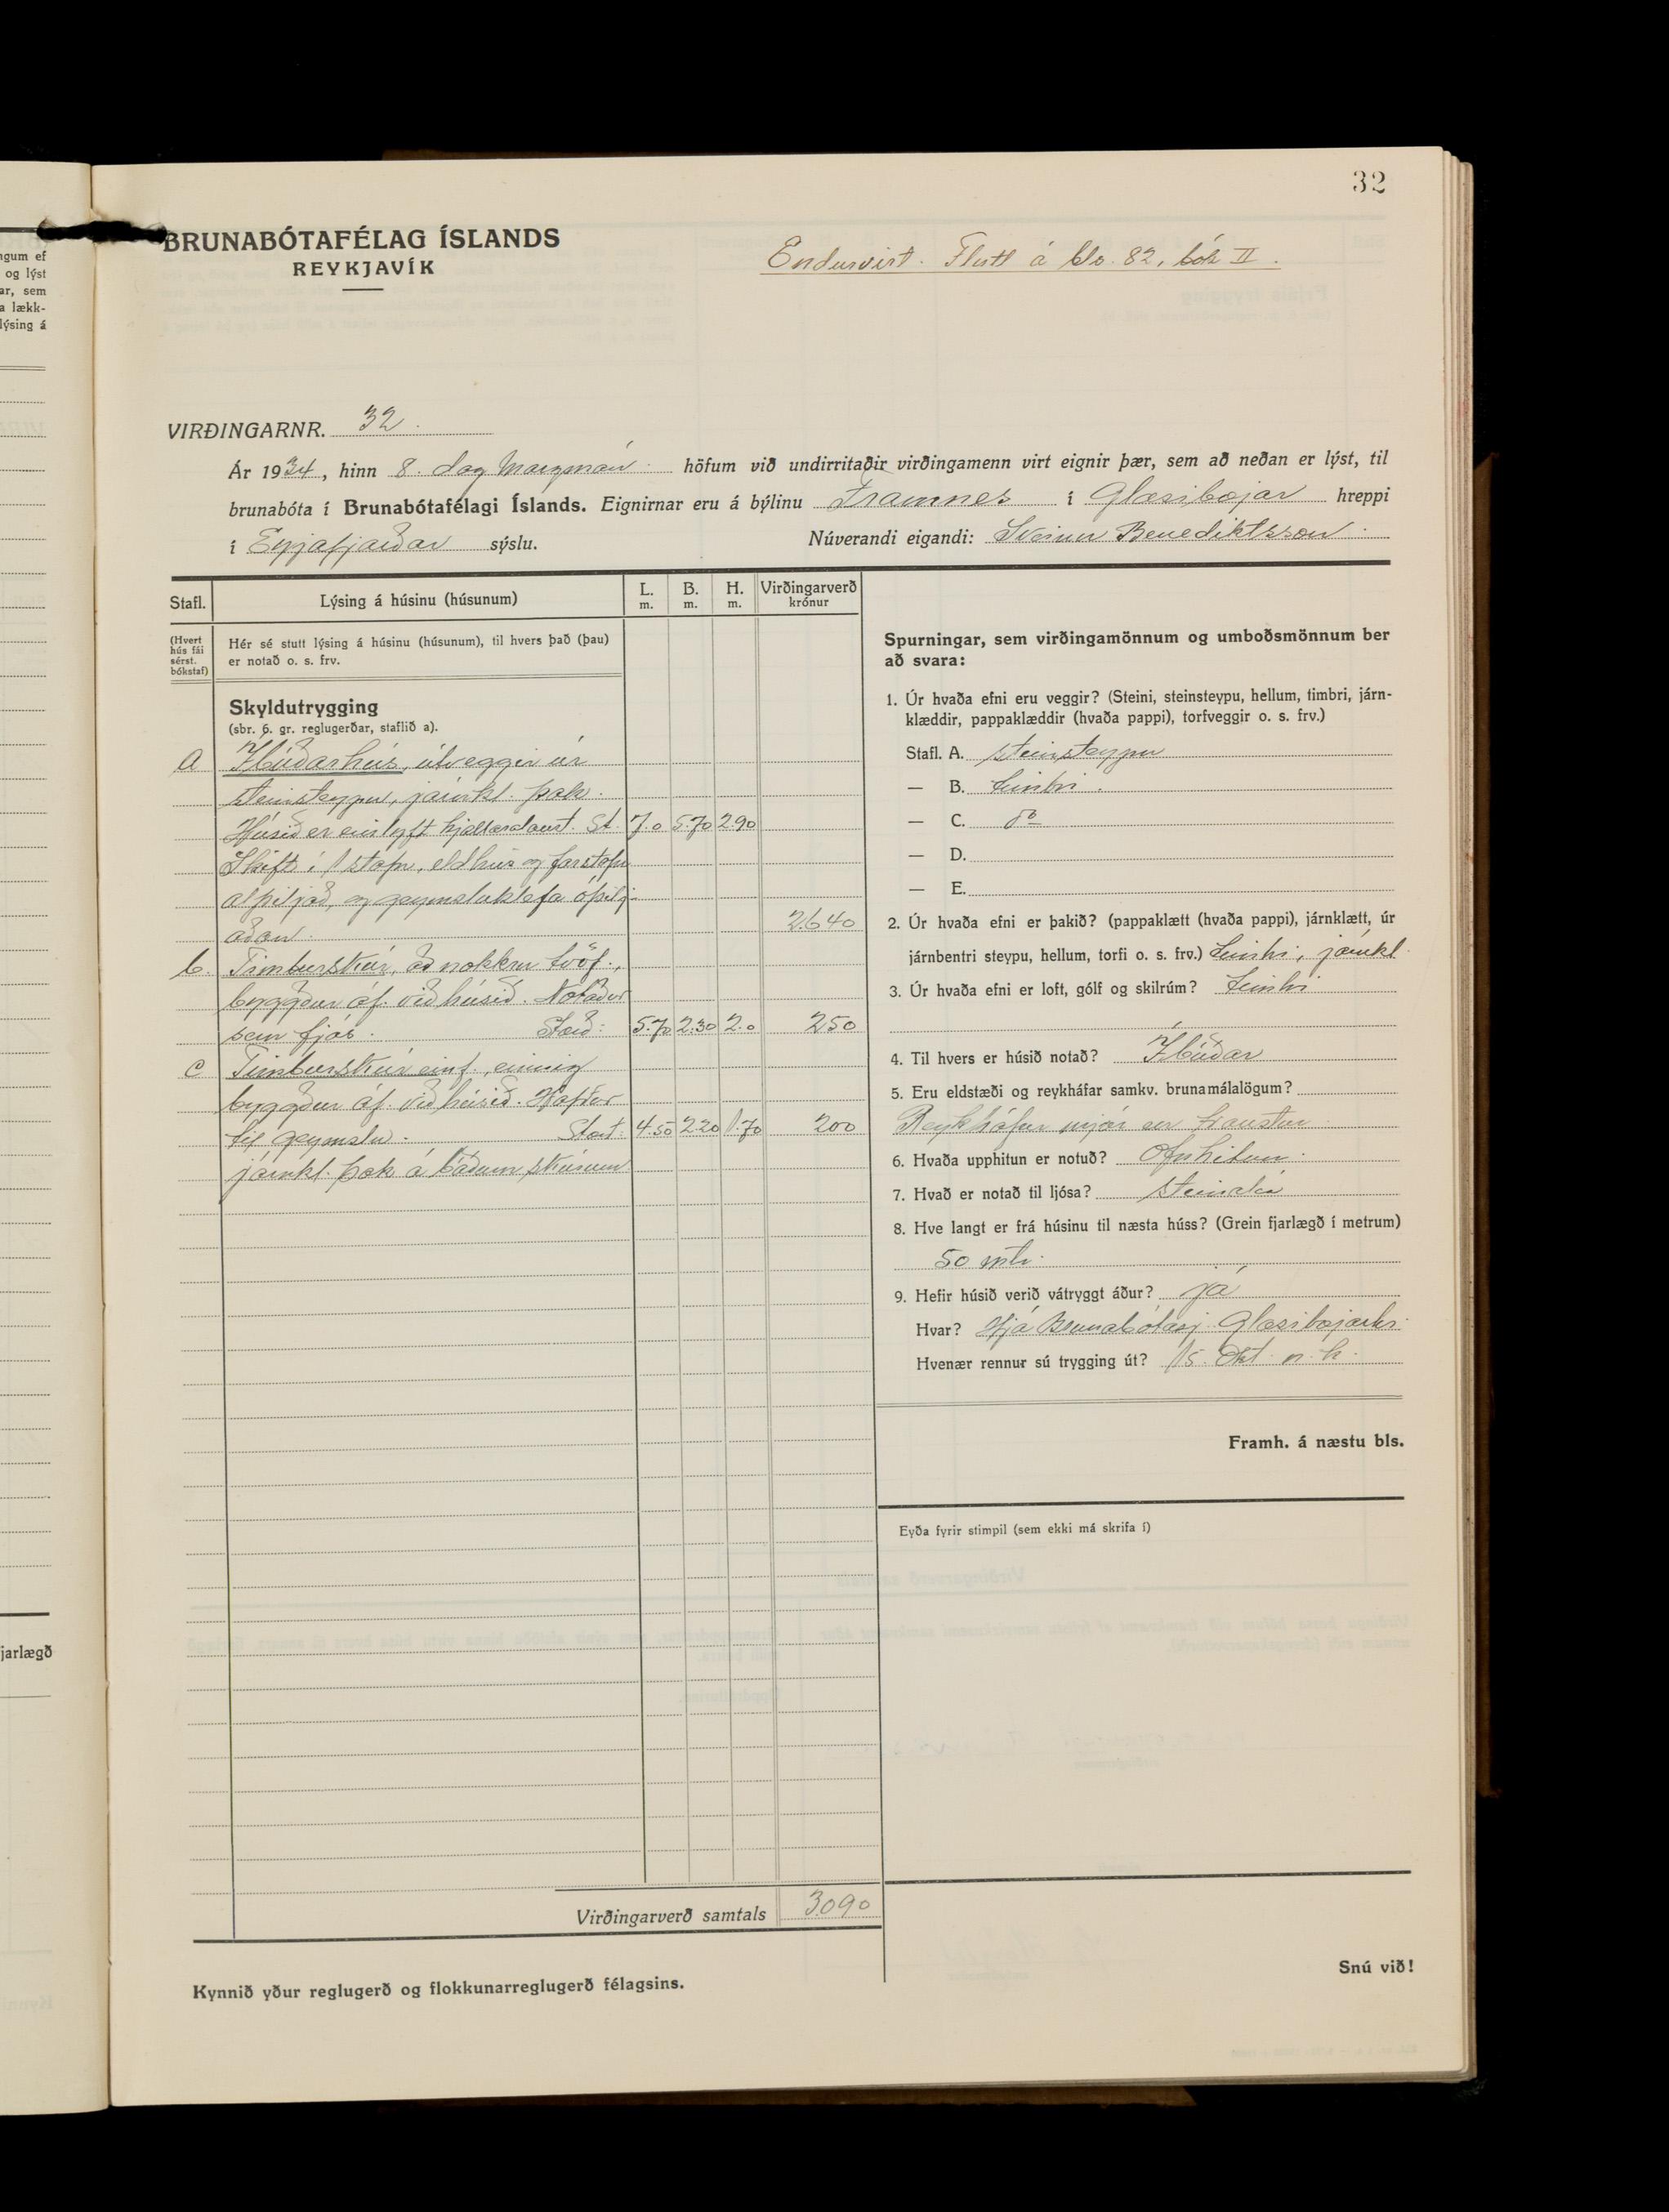 32
BRUNABÓTAFÉLAG ÍSLANDS
REYKJAVÍK
Endurvirt. Flutt á bls. 82, bók II.
VIRÐINGARNR. 32.
Ár 1934, hinn 8. dag Marzmán. höfum við undirritaðir virðingamenn virt eignir þær, sem að neðan er lýst, til
brunabóta í Brunabótafélagi Íslands. Eignirnar eru á býlinu Framnes í Glæsibæjar hreppi
í Eyjafjarðar sýslu. Núverandi eigandi: Sveinn Benediktsson
Stafl. Lýsing á húsinu (húsunum) L. m. B. m. H. m. Virðingarverð krónur
(Hvert hús fái sérst. bókstaf)
Hér sé stutt lýsing á húsinu (húsunum), til hvers það (þau)
er notað o. s. frv.
Skyldutrygging
(sbr. 6. gr. reglugerðar, staflið a).
a Íbúðarhús, útveggir úr
steinsteypu, járnkl. þak.
Húsið er einlyft kjallaralaust. St. 7.0 5.70 2.90
Skift í 1 stofu, eldhús og forstofu
alþiljað, og geymsluklefa óþilj-
aðan. 2.640
b. Timburskúr, að nokkru tvöf.,
byggður áf. við húsið. Notaður
sem fjós. Stærð: 5.70 2.30 2.0 250
c Timburskúr einf., einnig
byggður áf. við húsið. Hafður
til geymslu. Stærð: 4.50 2.20 1.70 200
járnkl. þak á báðum skúrum
Virðingarverð samtals 3.090
Kynnið yður reglugerð og flokkunarreglugerð félagsins.
Spurningar, sem virðingamönnum og umboðsmönnum ber
að svara:
1. Úr hvaða efni eru veggir? (Steini, steinsteypu, hellum, timbri, járn-
klæddir, pappaklæddir (hvaða pappi), torfveggir o. s. frv.)
Stafl. A. steinsteypu
— B. timbri.
— C. do
— D.
— E.
2. Úr hvaða efni er þakið? (pappaklætt (hvaða pappi), járnklætt, úr
járnbentri steypu, hellum, torfi o. s. frv.) timbri, járnkl.
3. Úr hvaða efni er loft, gólf og skilrúm? timbri
4. Til hvers er húsið notað? Íbúðar
5. Eru eldstæði og reykháfar samkv. brunamálalögum?
Reykháfur mjór en traustur
6. Hvaða upphitun er notuð? Ofnhitun.
7. Hvað er notað til ljósa? steinolía
8. Hve langt er frá húsinu til næsta húss? (Grein fjarlægð í metrum)
50 mtr.
9. Hefir húsið verið vátryggt áður? já
Hvar? Hjá Brunabótasj. Glæsibæjarhr.
Hvenær rennur sú trygging út? 15. Okt. n. k.
Framh. á næstu bls.
Eyða fyrir stimpil (sem ekki má skrifa í)
Snú við!